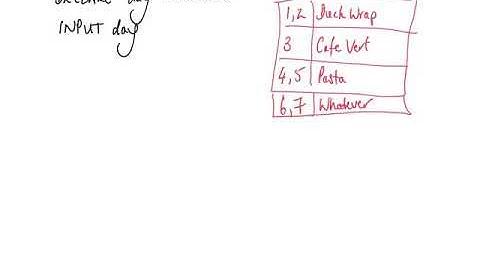 day
INPUT day
1,2 Duck Wrap
3 Cafe Vert
4,5 Pasta
6,7 Whatever